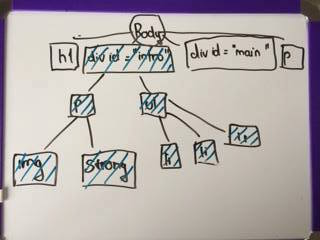 Body
h1
div id="intro"
div id="main"
p
p
ul
img
strong
li
li
li